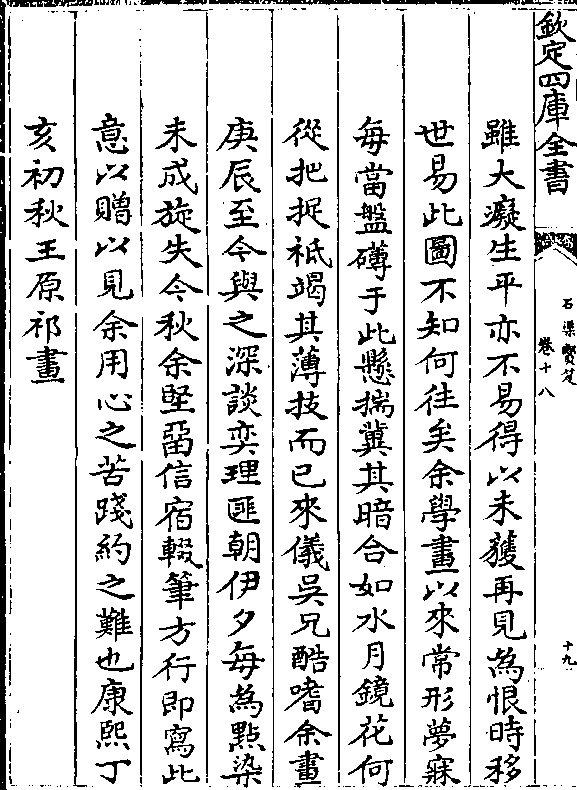 欽定四庫全書
石渠寳笈
卷十八
十九
雖大癡生平亦不易得以未獲再見為恨時移
世易此圖不知何往矣余學畫以來常形夢寐
每當盤礴于此懸揣冀其暗合如水月鏡花何
從把捉祗竭其薄技而已來儀吳兄酷嗜余畫
庚辰至今與之深談奕理匪朝伊夕每為㸃染
未成旋失今秋余堅留信宿輟筆方行即寫此
意以贈以見余用心之苦踐約之難也康熙丁
亥初秋王原祁畫